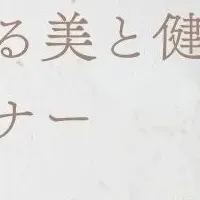 る美と健
ナー